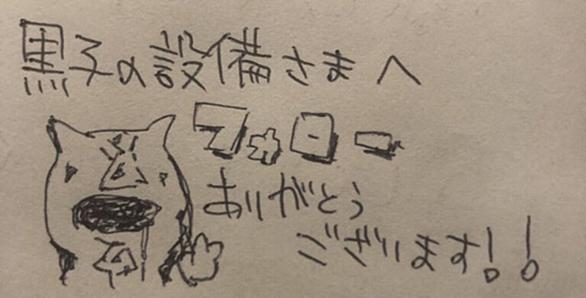 黒子の設備さまへ
フォロー
ありがとう
ございます!!